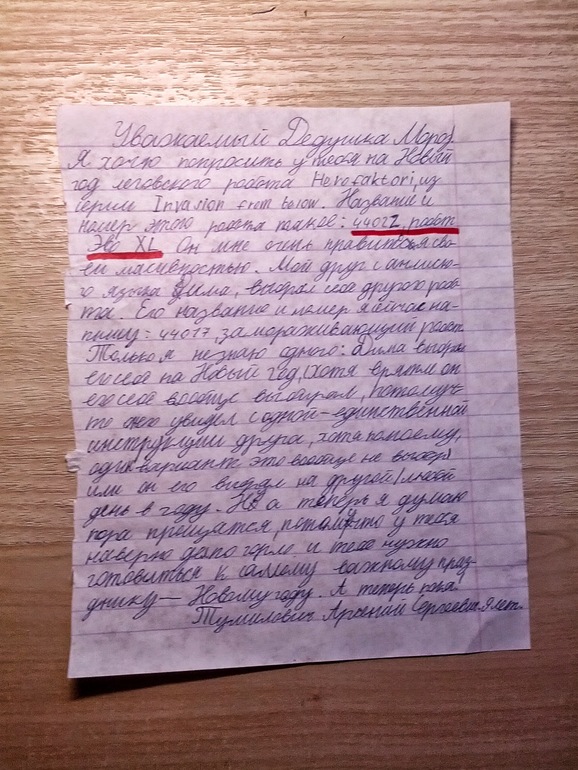 Уважаемый Дедушка Мороз
Я хочю попросить у тебя на Новый
год леговского робота Herofaktori, из
серии Invasion from below. Название и
номер этого робота таков: 44022, робот
Эво XL Он мне очень нравиться сво-
ей масивностью. Мой друг с англиско-
о языка Дима, выбрал себе другого робо-
та. Его название и номер я сейчас на-
пишу: 44017, замораживающий робот.
Только я незнаю одного: Дима выбрал
его себе на Новый год, (хотя врятли он
его себе вообще выбирал, потомуч-
то он его увидел с одной-единственной
инструкции друга, хотя помоему,
один вариант это вообще не выбор)
или он его выбрал на другой/любой
день в году. Но а теперь я думаю
пора прощатся, потомучто у тебя
наверно дел по горло и тебе нужно
готовиться к самому важному праз-
днику — Новому году. А теперь пока
Тумилович Арсений Сергеевич 9 лет.